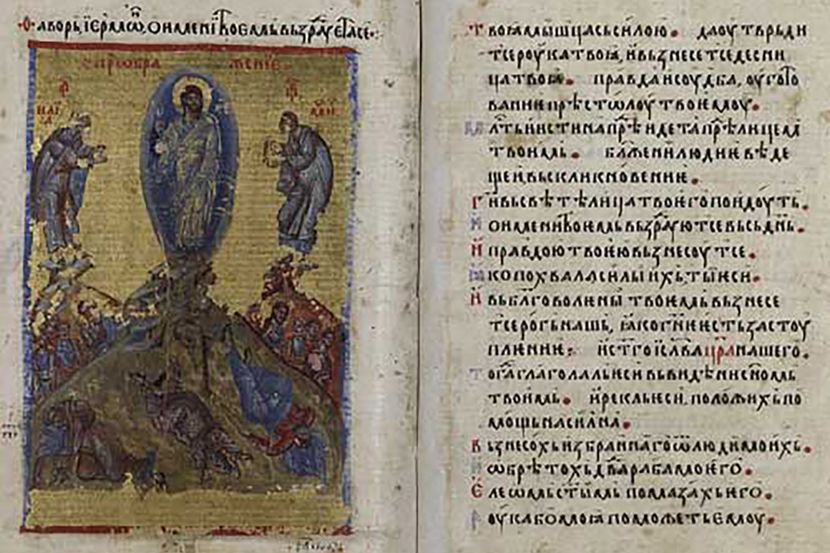 ѳаворь, і єрмѡ, ѡ имени твоемь вьзраⷣуетасе
прѡбра жениѥ
твоꙗ мышцасьсилою· да оутврьди
тсе роука твоꙗ, и вьзнесетсе десни
ца твоꙗ· правда и соудба, оугото
вание прѣстолоу твоѥмоу·
млⷭть и истина прѣидета прѣⷣ лицемь
твоимь· блажени людиѥ вѣде
щеи вьскликновение·
ги вь свѣтѣ лица твоѥго поидоуть·
ѡ имени твоѥмь вьзраⷣуютсе вьсь днь·
и правдою твоѥю вьзнесоутсе·
ꙗко похвала силы ихь, ты ѥси·
и вь благоволени твоѥмь вьзнесе
тсе рогь нашь, ꙗко гнѥ ѥсть застоу
плениѥ· и стго іслва цра нашего·
тогⷣа глагола ѥси вь видѣни сномь
твоимь· и рекль ѥси, положихь по
мощь на силна·
вьзнесохь избраннаго ѡ люди моихь·
ѡбрѣтохь двда раба моѥго·
єлеѡмь стымь помазахь ѥго·
роука бо моꙗ поможеть ѥмоу·